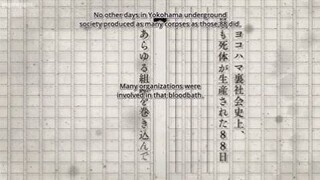 No other days in Yokohama underground
society produced as many corpses as those 88 did.
Many organizations were
involved in that bloodbath.
ヨコハマ裏社会史上、
最も死体が生産された88日
あらゆる組織を巻き込んで